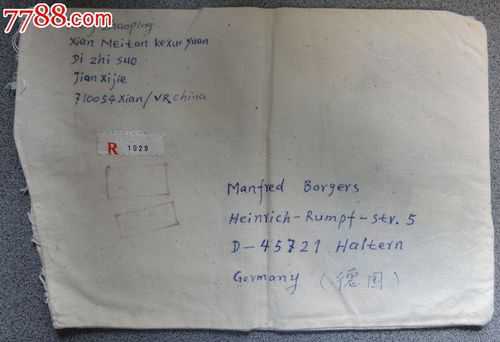 7788.com
zhaoping
Xian Meitan kexue yuan
Di zhi suo
Jian xijie
710054 Xian/VR china
R 1029
Manfred Borgers
Heinrich-Rumpf-str. 5
D-45721 Haltern
Germany (德国)